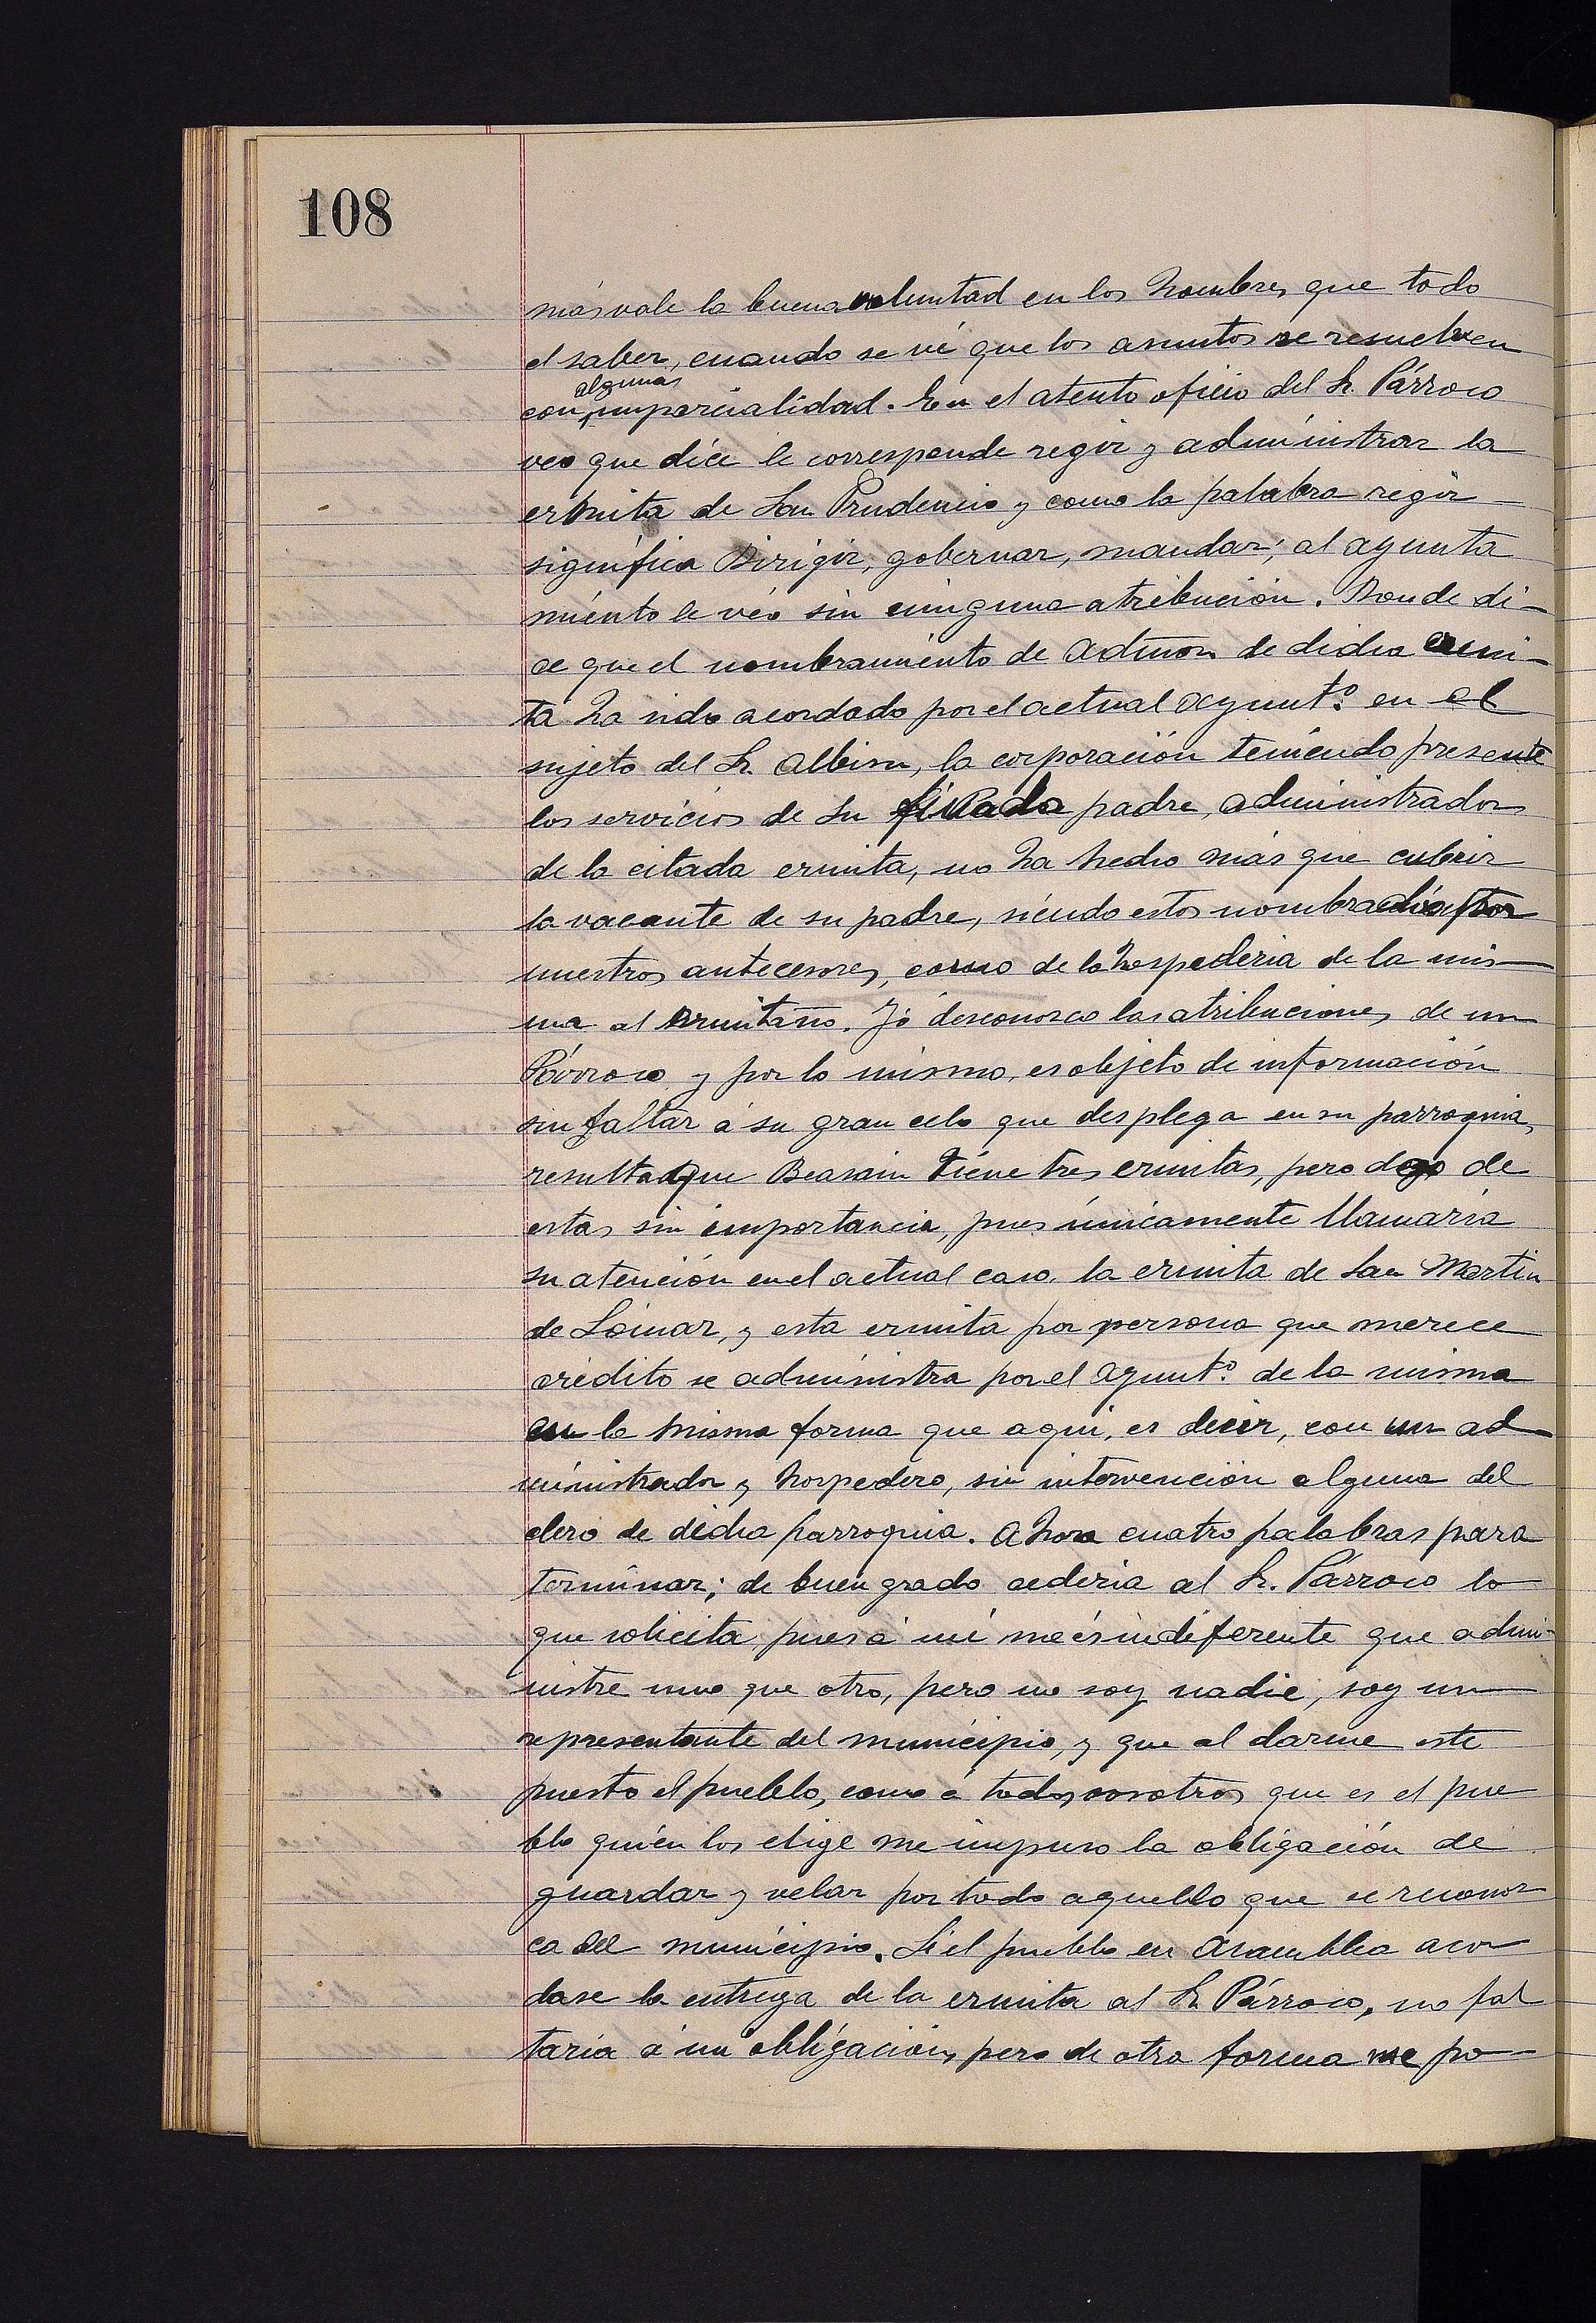 108
más vale la buena voluntad en los hombres que todo
el saber, cuando se vé que los asuntos se resuelven
algunas
con imparcialidad. En el atento oficio del Sr. Párroco
veo que díce le corresponde regir y administrar la
ermita de San Prudencio y como la palabra regir
significa Dirigir, gobernar, mandar; al ayunta
miento le véo sin ninguna atribución. Donde di-
ce que el nombramiento de admon de dicha ermi-
ta ha sido acordado por el actual ayuntº. en el
sujeto del Sr. Albisu, la corporación teniendo presente
los servicios de su finado padre, administrador
de la citada ermita, no ha hecho más que cubrir
la vacante de su padre, siendo estos nombrados por
nuestros antecesores, como de la hospederia de la mis-
ma al ermitaño. Yó desconosco las atribuciones de un
Párroco y por lo mismo, es objeto de información
sin faltar á su gran celo que desplega en su parroquia,
resulta que Beasain tiene tres ermitas, pero dejo de
estas sin importancia, pues únicamente llamaría
su atención en el actual caso, la ermita de San Martin
de Loinaz, y esta ermita por persona que merece
crédito se administra por el ayuntº. de la misma
en la misma forma que aqui, es decir, con un ad
ministrador y hospedero, sin intervención alguna del
clero de dicha parroquia. Ahora cuatro palabras para
terminar; de buen grado cederia al Sr. Párroco lo
que solicita, pues á mi me és indiferente que admi-
nistre uno que otro, pero no soy nadie, soy un
representante del municipio, y que al darme este
puesto el pueblo, como á todos vosotros que es el pue
blo quién los elige me impuso la obligación de
guardar y velar por todo aquello que se reconoz
ca del município. Si el pueblo en Asamblea acor
dase la entrega de la ermita al Sr Párroco, no fal
taría á mi obligación, pero de otra forma me po-